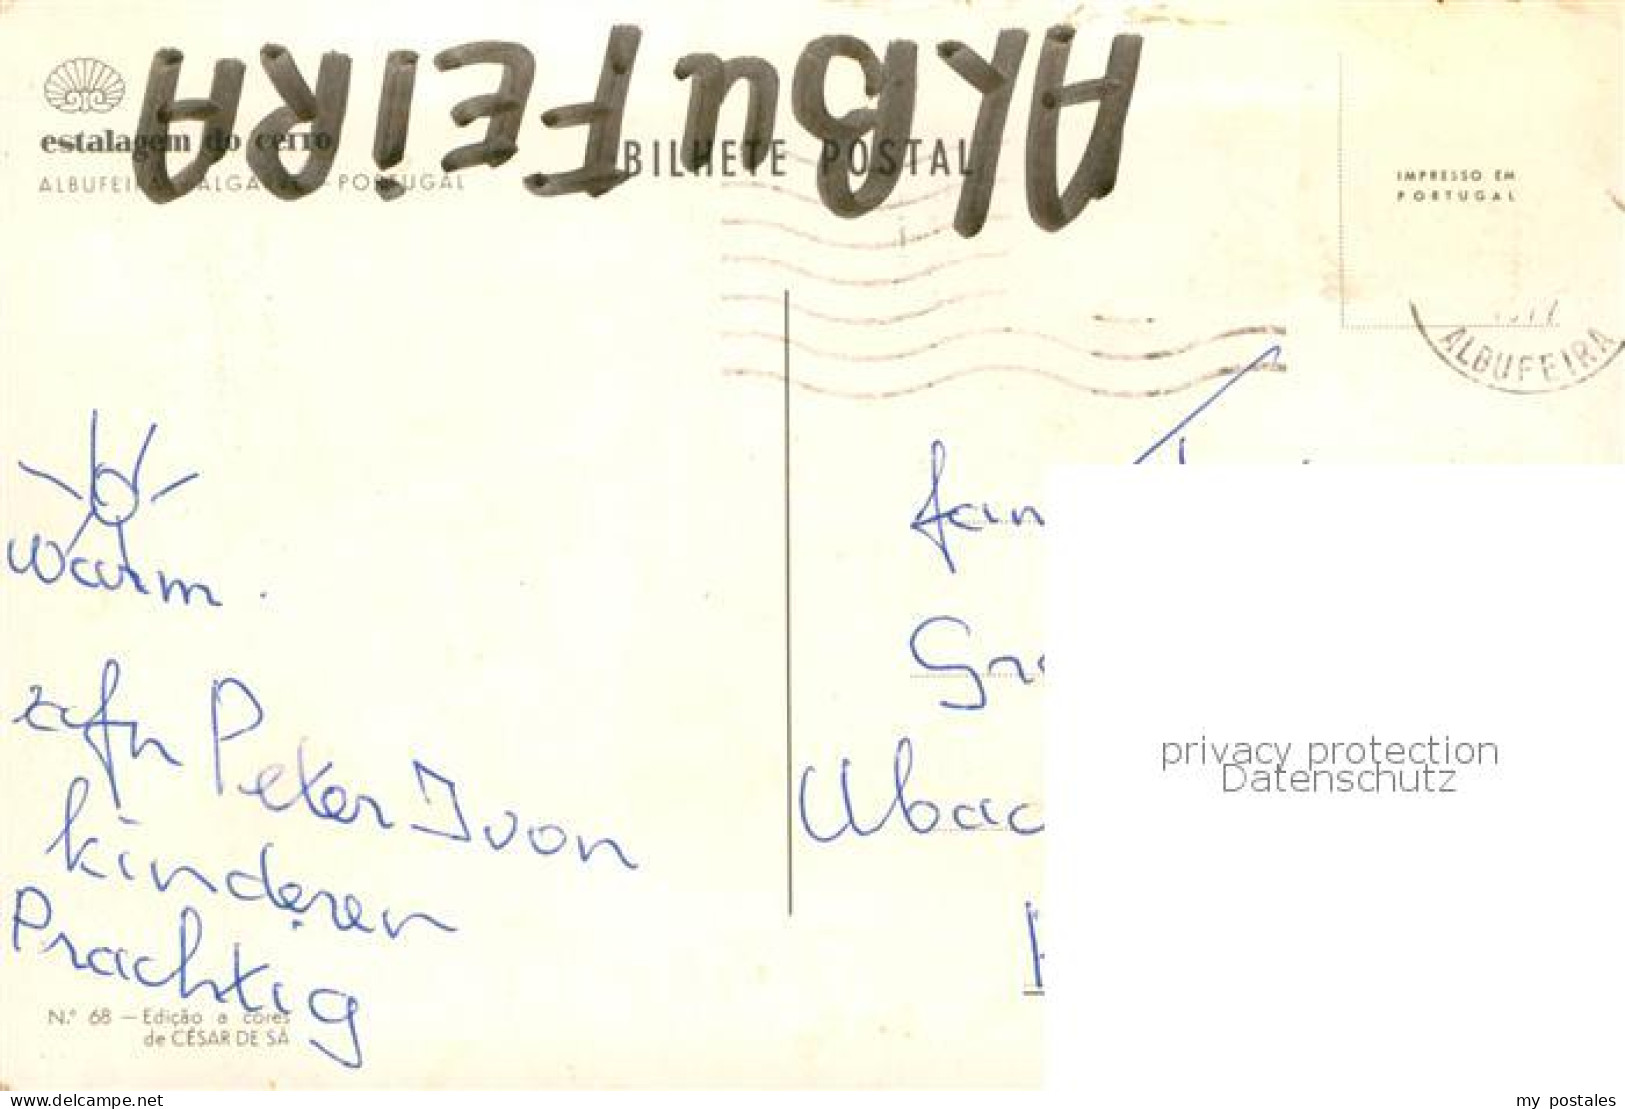 ALBUFEIRA
estalagem do cerro
ALBUFEIRA - ALGARVE - PORTUGAL
BILHETE POSTAL
IMPRESSO EM
PORTUGAL
ALBUFEIRA
warm.
Peter Ivon
kinderen
Prachtig
N.º 68 — Edição a cores
de CÉSAR DE SÁ
fam
Gr
Ubac
privacy protection
Datenschutz
www.delcampe.net
my_postales